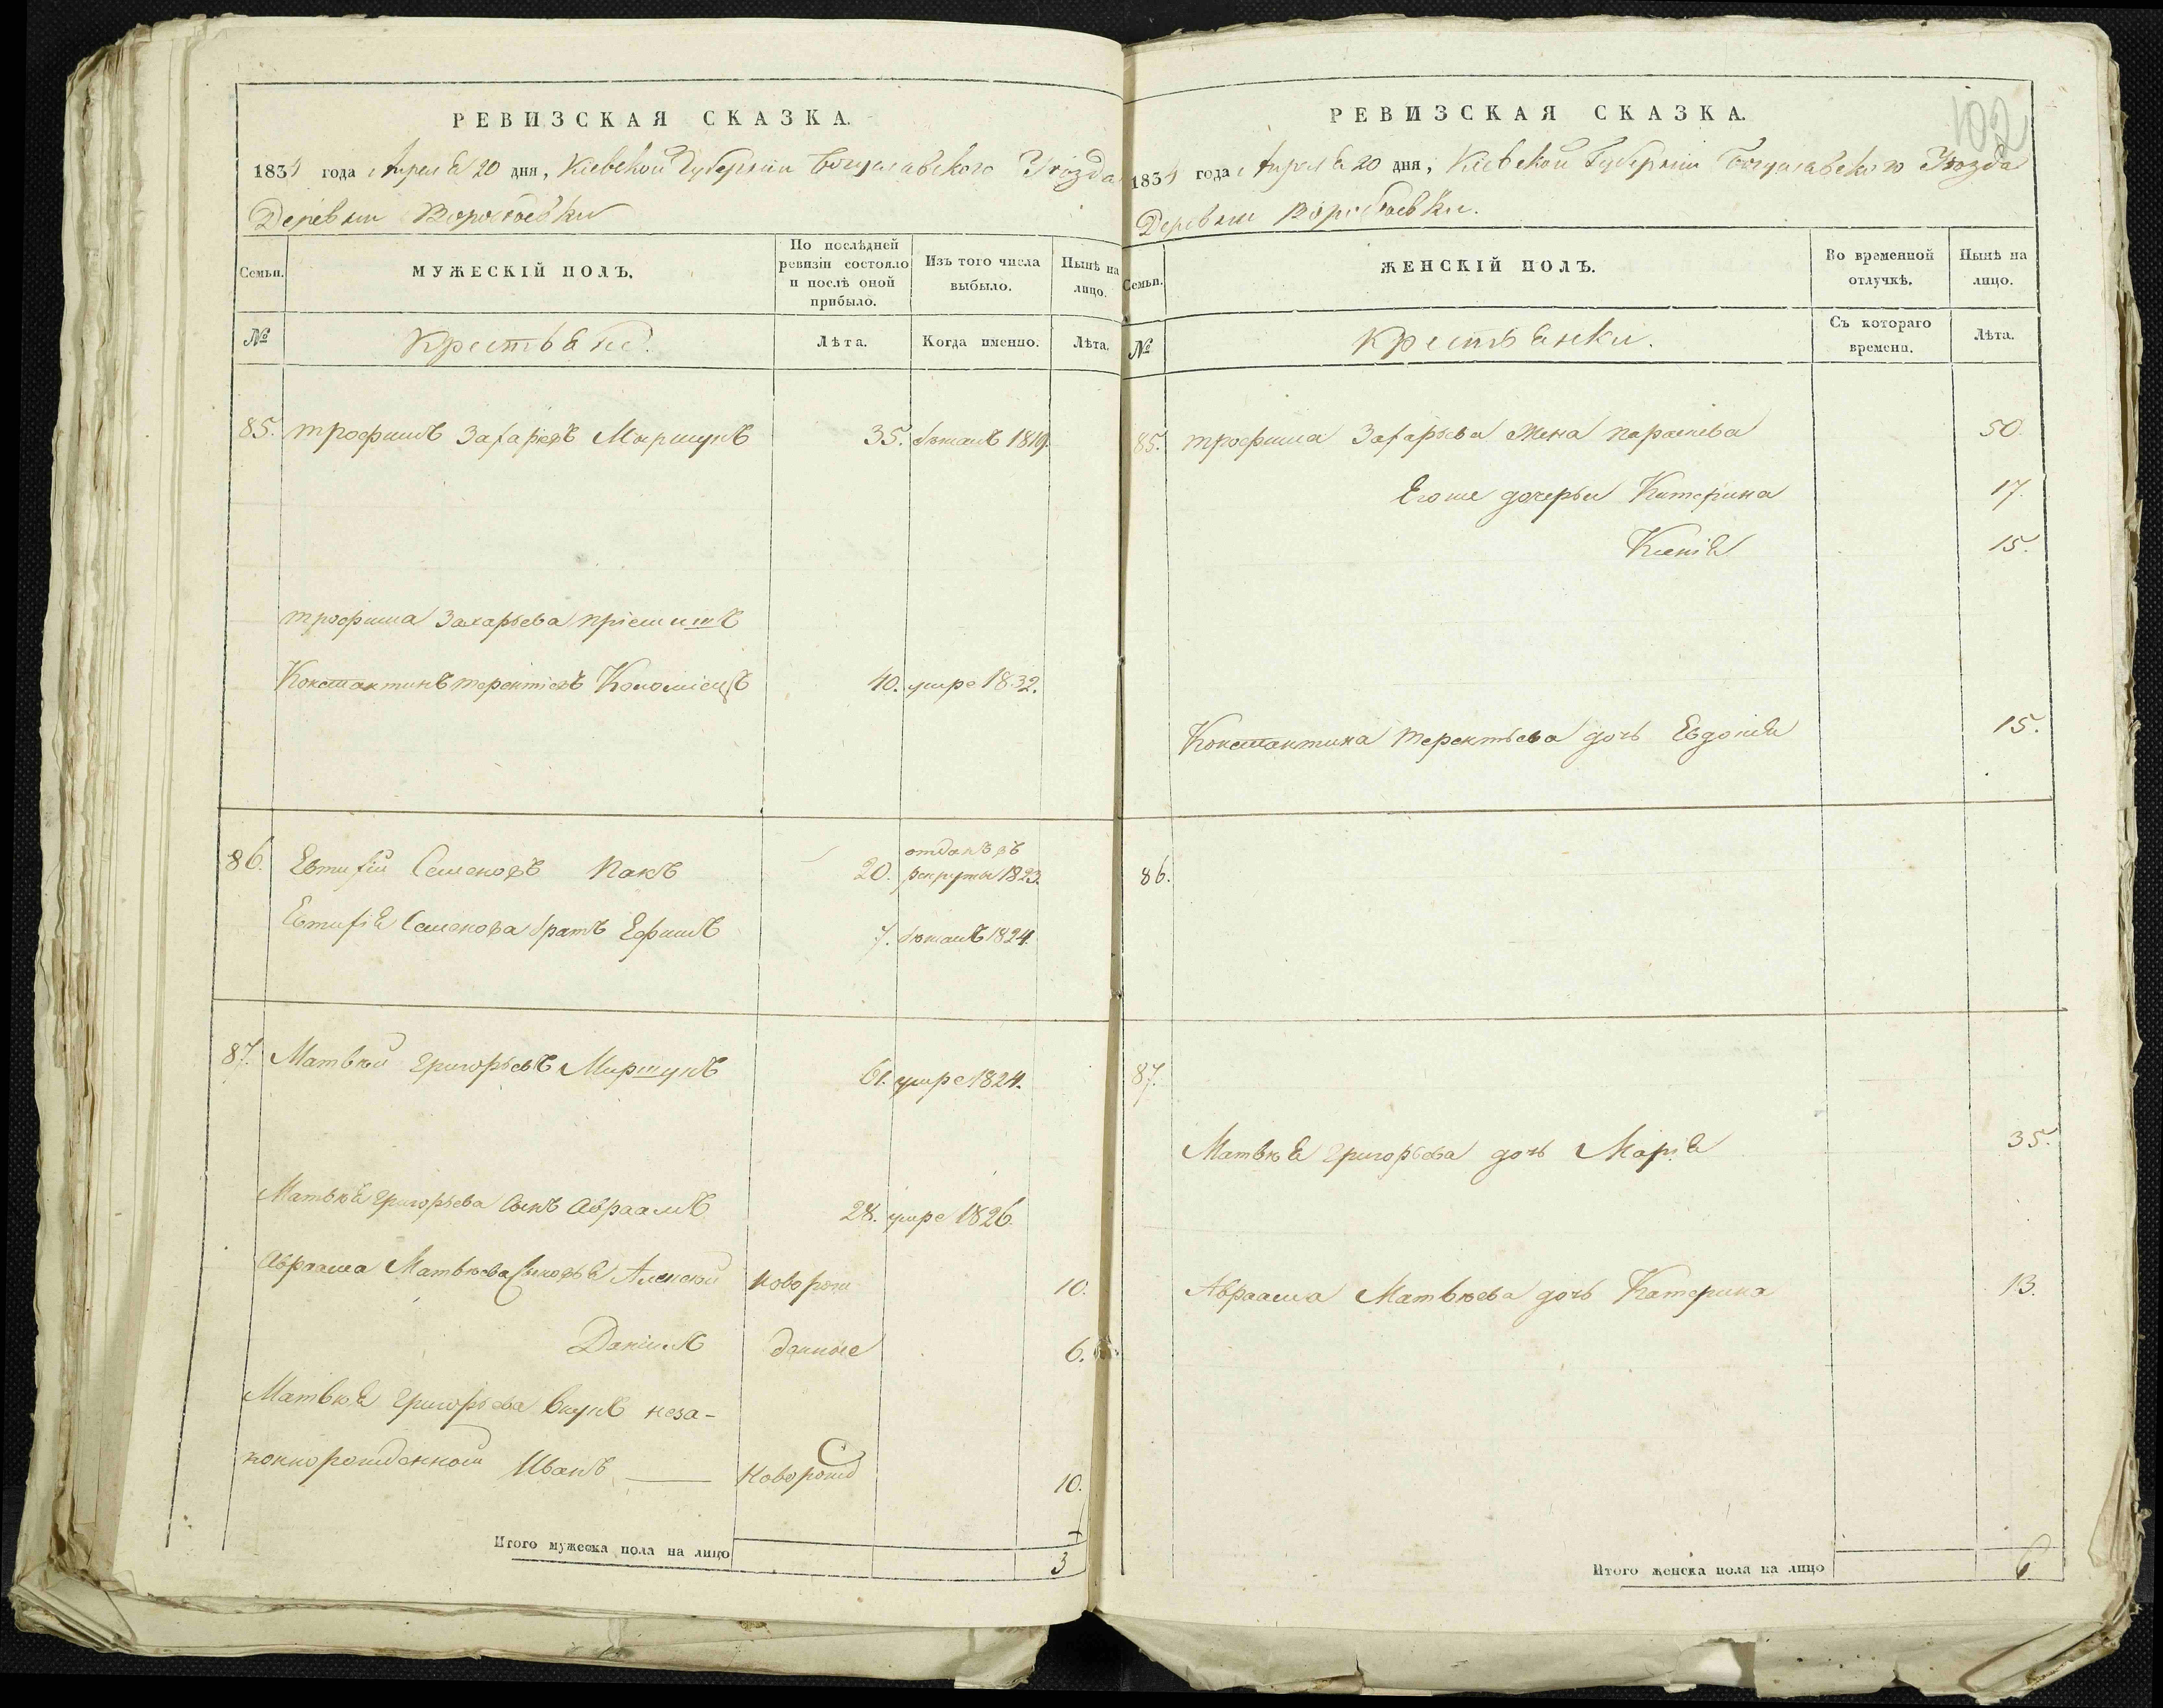 РЕВИЗСКАЯ СКАЗКА.
1834 года Апреля 20 дня, Кіевской Губерніи Богуславского Уѣзда
Деревни Воробіевки
Семьи.
МУЖЕСКІЙ ПОЛЪ.
По послѣдней ревизіи состояло и послѣ оной прибыло.
Изъ того числа выбыло.
Нынѣ на лицо.
№
Крестьяне.
Лѣта.
Когда именно.
Лѣта.
85. трофимъ Захаріевъ Миршукъ 35. бѣжалъ 1819.
трофима Захарьева пріемишъ
Константинъ терентіевъ Коломіецъ 40. умре 1832.
86. Евтихій Семеновъ Пакъ 20. отданъ въ
рекруты 1823.
Евтихія Семенова братъ Ефимъ 7. бѣжалъ 1824.
87. Матвѣй Григорьевъ Миршукъ 61. умре 1824.
Матвѣя Григорьева сынъ Авраамъ 28. умре 1826.
Авраама Матвѣева сыновья Алексѣй новорож 10.
Даніилъ данные 6.
Матвѣя Григорьева внукъ неза-
коннорожденной Иванъ новорожд 10.
Итого мужеска пола на лицо 3
102
РЕВИЗСКАЯ СКАЗКА.
1834 года Апреля 20 дня, Кіевской Губерніи Богуславского Уѣзда
Деревни Воробіевки.
Семьи.
ЖЕНСКІЙ ПОЛЪ.
Во временной отлучкѣ.
Нынѣ на лицо.
№
Крестьянки.
Съ котораго времени.
Лѣта.
85. трофима Захарьева жена параскева 50.
Егоже дочерьи Катерина 17.
Ксенія 15.
Константина терентьева дочь Евдокія 15.
86.
87.
Матвѣя григорьева дочь Марія 35.
Авраама Матвѣева дочь Катерина 13.
Итого женска пола на лицо 6